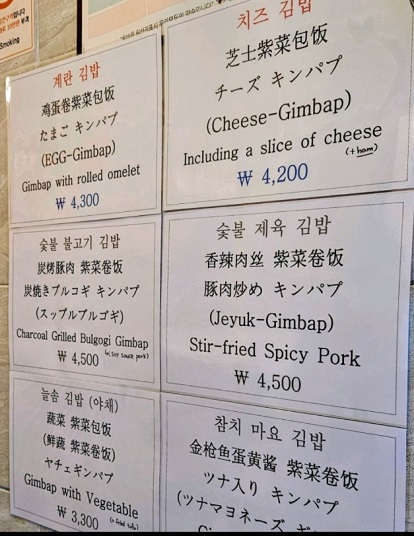 Smoking
계란 김밥
鸡蛋卷紫菜包饭
たまご キンパプ
(EGG-Gimbap)
Gimbap with rolled omelet
₩ 4,300
치즈 김밥
芝士紫菜包饭
チーズ キンパプ
(Cheese-Gimbap)
Including a slice of cheese
(+ham)
₩ 4,200
숯불 불고기 김밥
炭烤豚肉 紫菜卷饭
炭焼きプルコギ キンパプ
(スップルプルゴギ)
Charcoal Grilled Bulgogi Gimbap
₩ 4,500
(soy sauce pork)
숯불 제육 김밥
香辣肉丝 紫菜卷饭
豚肉炒め キンパプ
(Jeyuk-Gimbap)
Stir-fried Spicy Pork
₩ 4,500
늘솜 김밥 (야채)
蔬菜 紫菜包饭
(鲜蔬 紫菜卷饭)
ヤチェキンパプ
Gimbap with Vegetable
₩ 3,300
참치 마요 김밥
金枪鱼蛋黄酱 紫菜卷饭
ツナ入り キンパプ
(ツナマヨネーズ